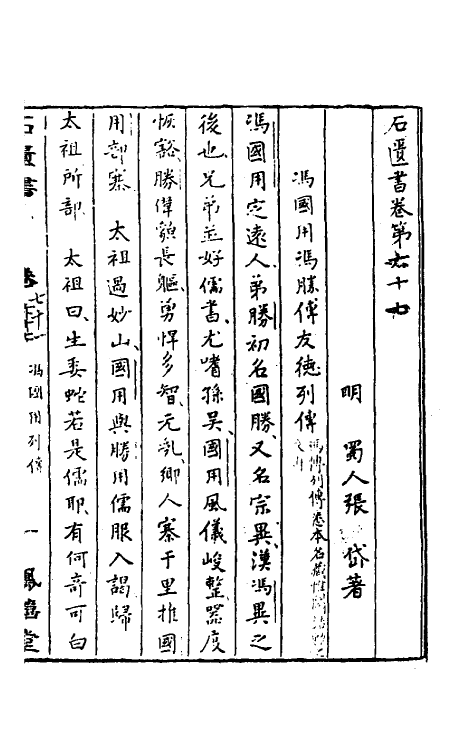 石匱書卷第六十七
明 蜀人張 岱著
馮國用馮勝傅友德列傳
馮國用定遠人弟勝初名國勝又名宗異漢馮異之
後也兄弟並好儒書尤嗜孫吳國用風儀峻整器度
恢豁勝偉貌長軀勇悍多智元亂鄉人寨于里推國
用部寨 太祖過妙山國用與勝用儒服入謁歸
太祖所部 太祖曰生委蛇若是儒耶有何奇可白
石匱書 卷七十一 馮國用列傳 一 鳳嬉堂